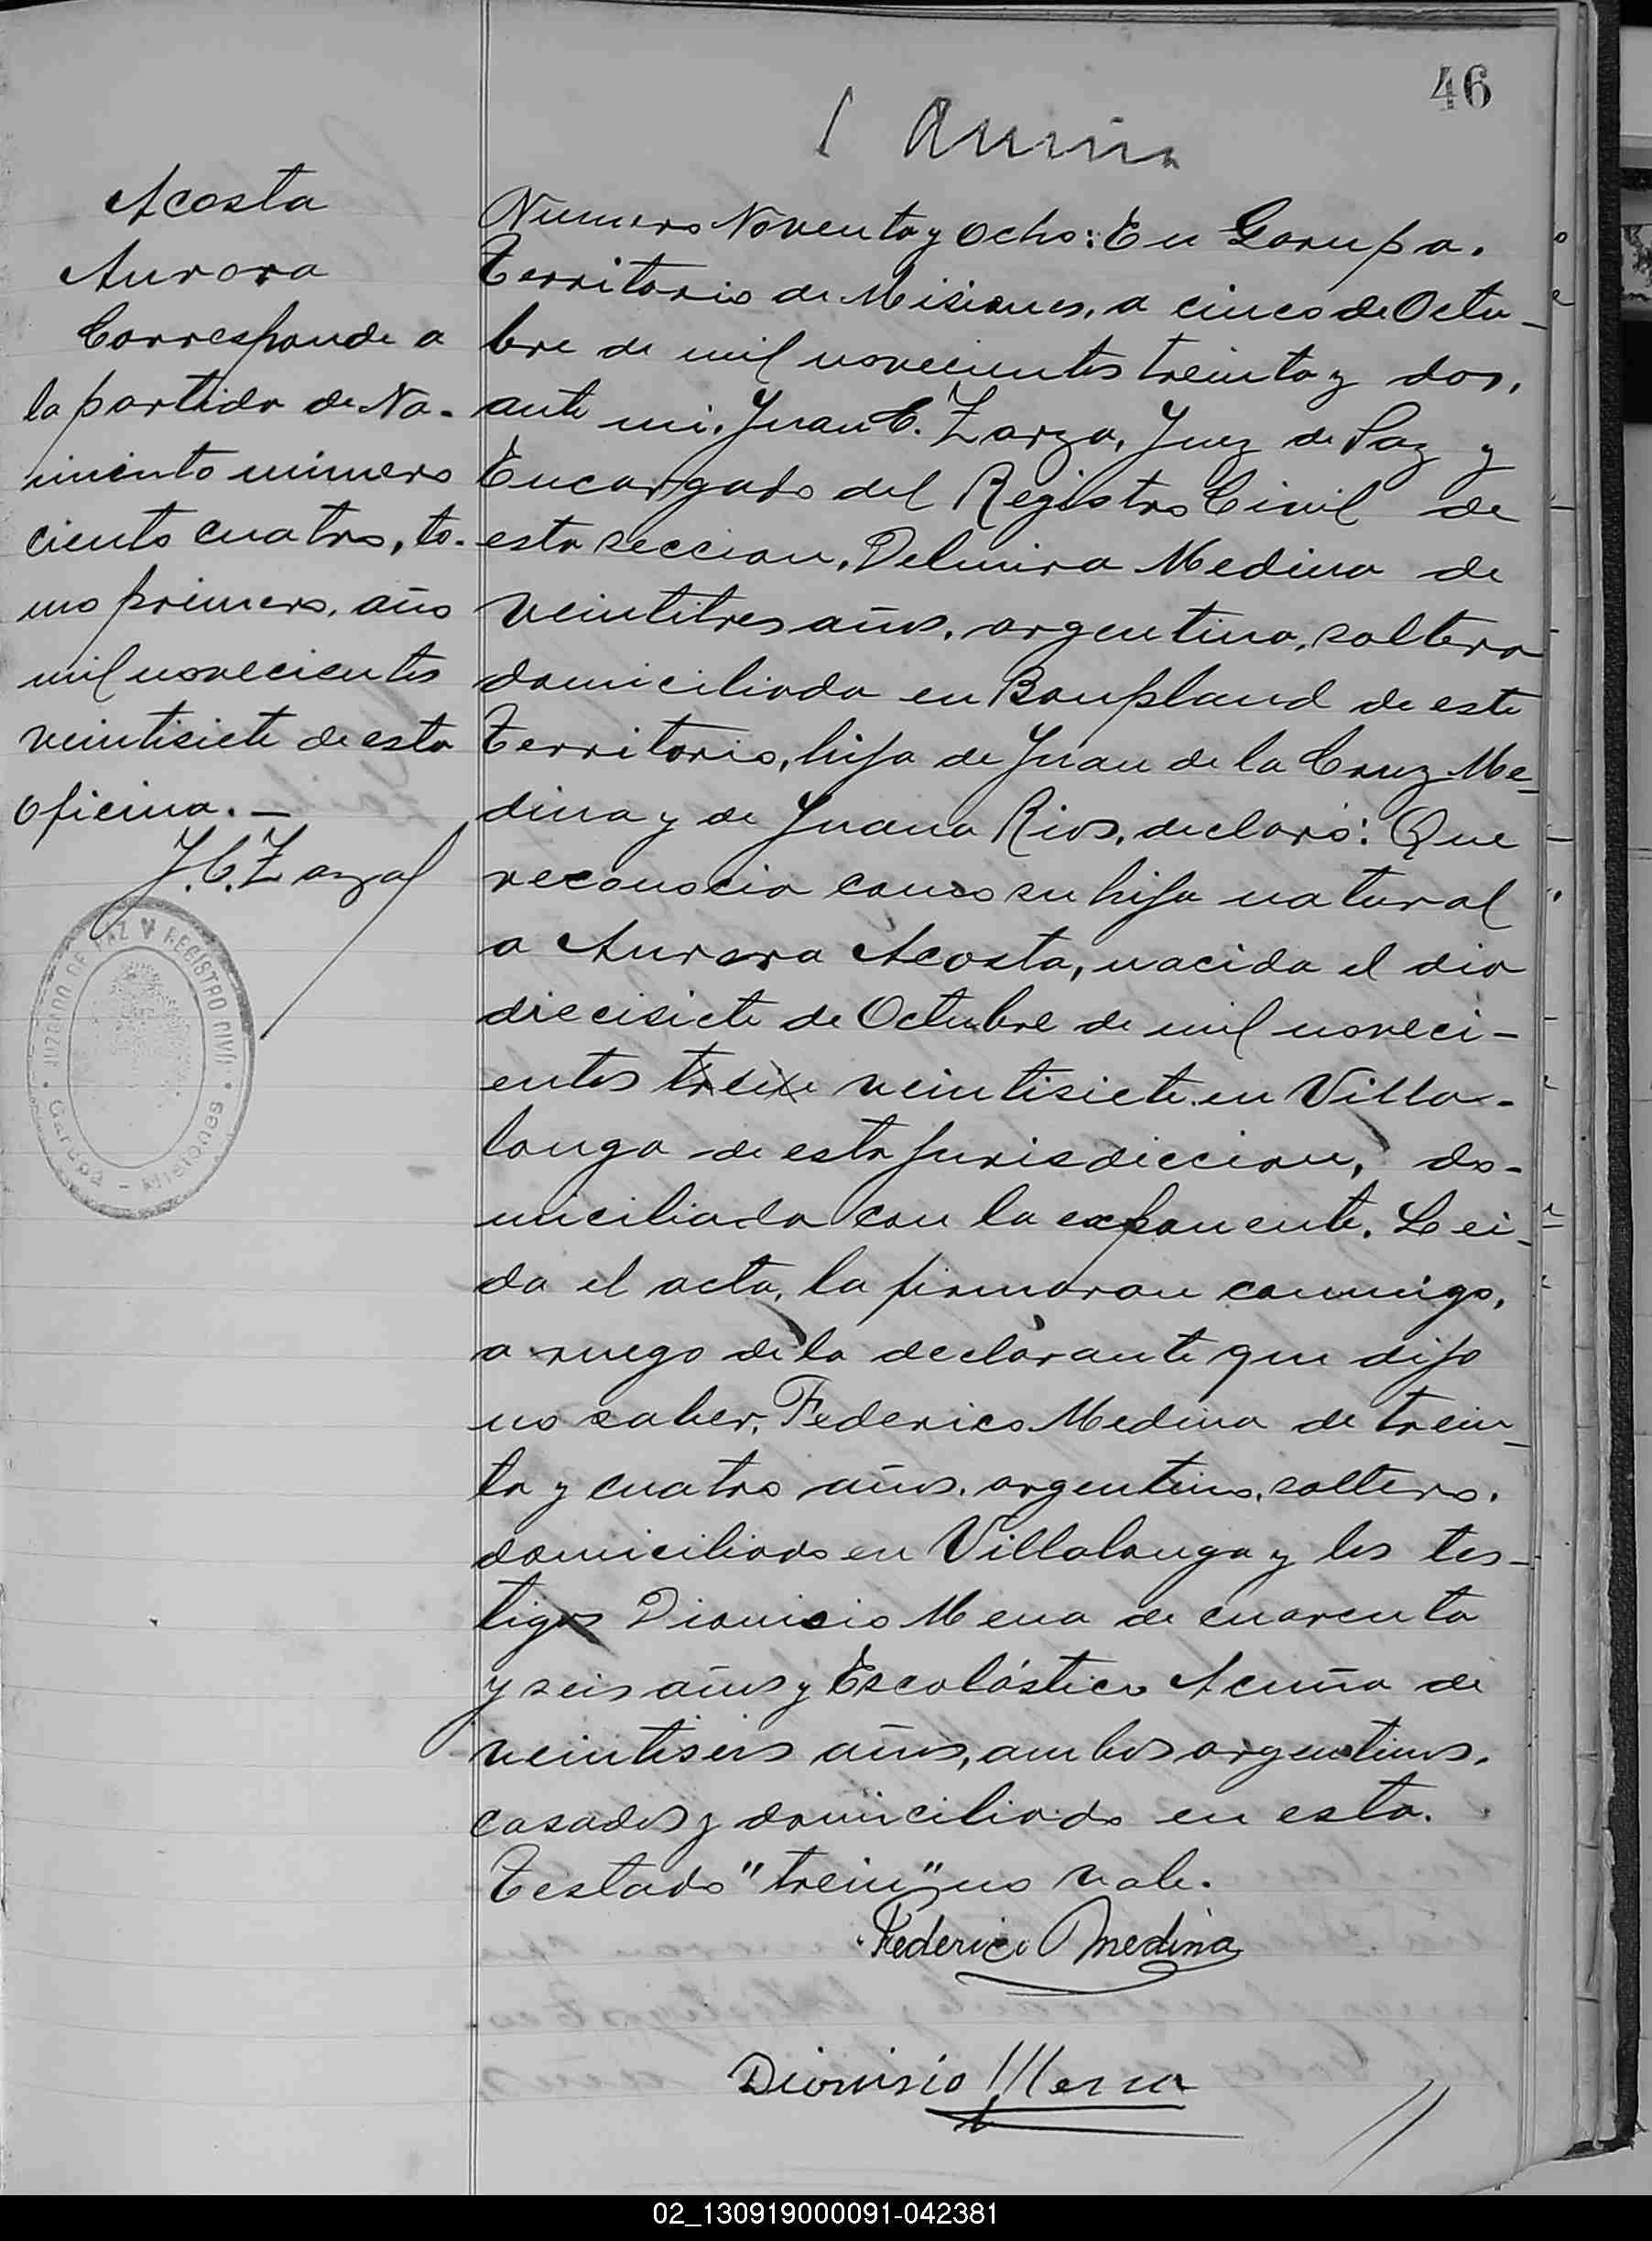 46
Acosta
Aurora
Corresponde a
la partida de Na-
cimiento número
ciento cuatro, to-
mo primero, año
mil novecientos
veintisiete de esta
oficina.—
J.C. Zarza
JUZGADO DE PAZ Y REGISTRO CIVIL
Garupá - Misiones
Numero Noventa y Ocho: En Garupa,
Territorio de Misiones, a cinco de Octu-
bre de mil novecientos treinta y dos,
ante mi, Juan C. Zarza, Juez de Paz y
Encargado del Registro Civil de
esta seccion, Delmira Medina de
veintitres años, argentina, soltera
domiciliada en Bonpland de este
Territorio, hija de Juan de la Cruz Me-
dina y de Juana Rios, declaró: Que
reconocia como su hija natural
a Aurora Acosta, nacida el dia
diecisiete de Octubre de mil noveci-
entos trein veintisiete en Villa-
longa de esta jurisdiccion, do-
miciliada con la exponente. Lei-
da el acta, la firmaron conmigo,
a ruego de la declarante que dijo
no saber, Federico Medina de trein-
ta y cuatro años, argentino, soltero,
domiciliado en Villalonga y los tes-
tigos Dionicio Mena de cuarenta
y seis años y Escolástico Acuña de
veintiseis años, ambos argentinos,
casados y domiciliado en esta.
Testado "trein" no vale.
Federico Medina
Dionisio Mena
02_130919000091-042381